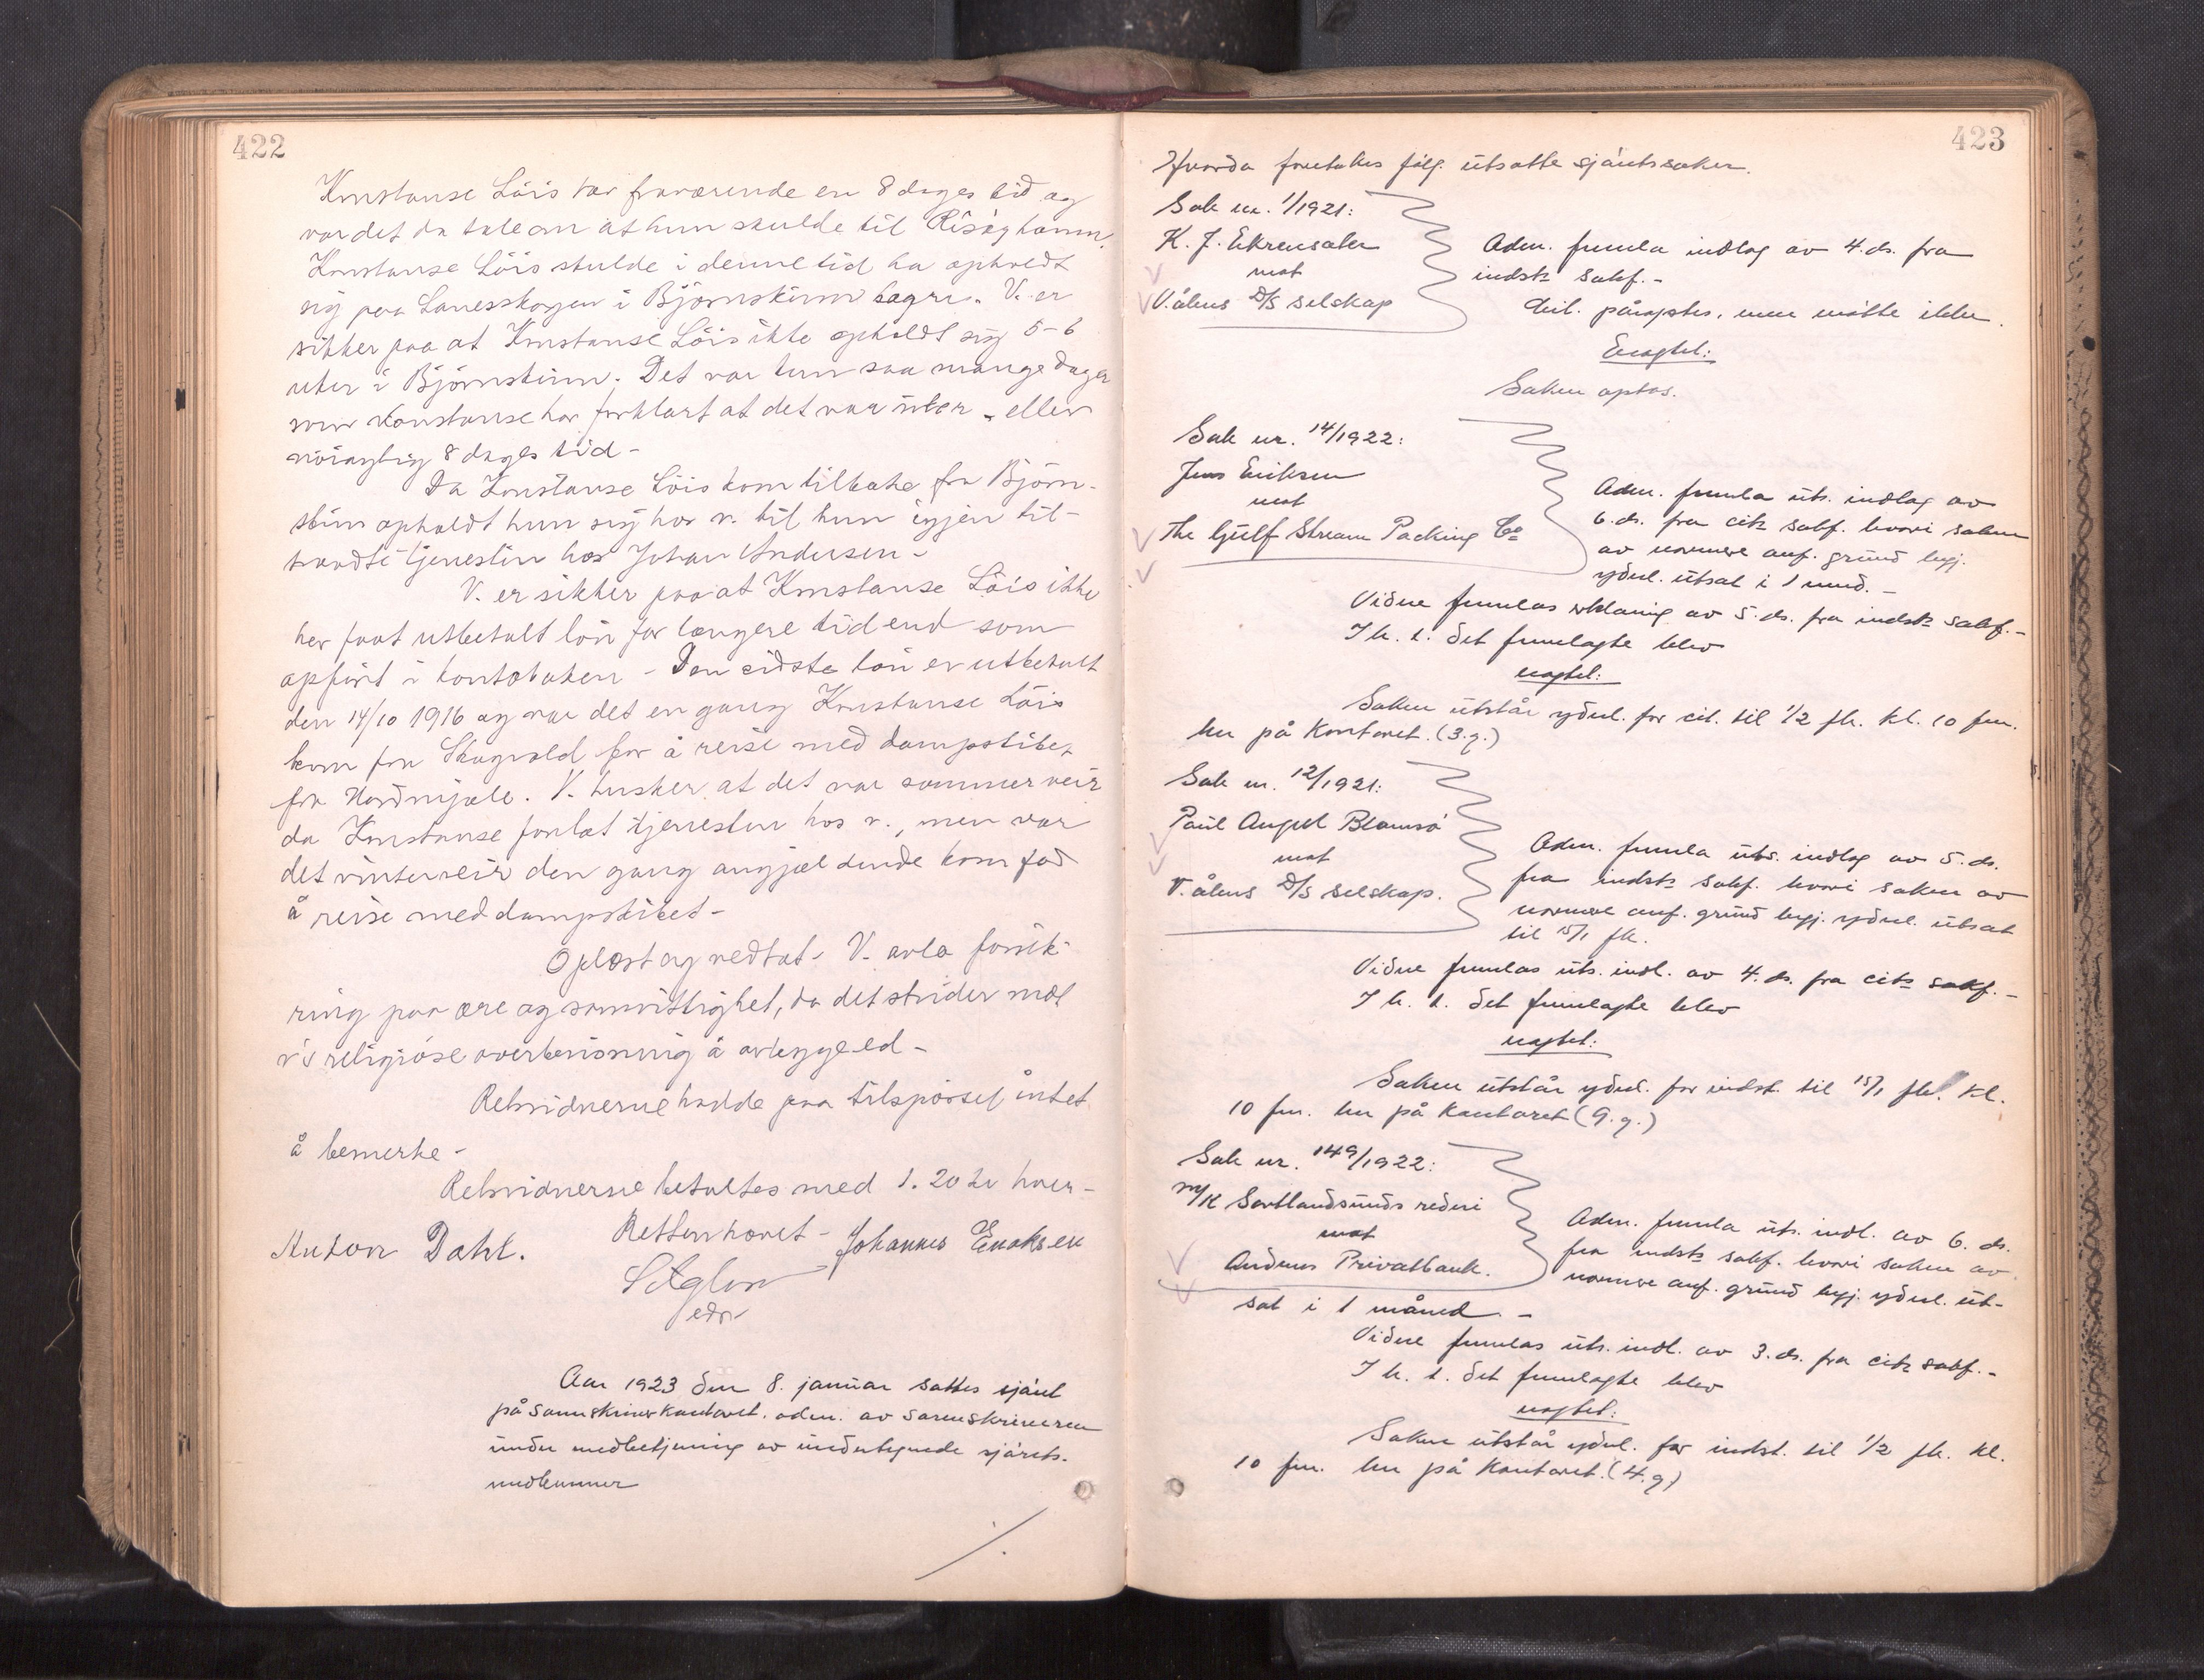 422
Konstanse Löis var fraværende en 8 dages tid og
var det da tale om at hun skulde til Risöyhamn.
Konstanse Löis skulde i denne tid ha opholdt
sig paa Lanesskogen i Björnskinn sogn. V. er
sikker paa at Konstanse Löis ikke opholdt sig 5-6
uker i Björnskinn. Det var kun saa mange dager
som Konstanse har forklart at det var uker - eller
nöiagtig 8 dages tid -
Da Konstanse Löis kom tilbake fra Björn-
skinn opholdt hun sig hos v. til hun igjen til-
traadte tjenesten hos Johan Andersen -
V. er sikker paa at Konstanse Löis ikke
har faat utbetalt lön for længere tid end som
opfört i kontoboken - Den sidste lön er utbetalt
den 14/10 1916 og var det en gang Konstanse Löis
kom fra Skogvold for å reise med dampskibet
fra Nordmjele. V. husker at det var sommerveir
da Konstanse forlot tjenesten hos v., men var
det vinterveir den gang angjældende kom for
å reise med dampskibet -
Oplæst og vedtat - V. avla forsik-
ring paa ære og samvittighet, da det strider mot
v's religiöse overbevisning å avlægge ed -
Retsvidnerne hadde paa tilspörsel intet
å bemerke -
Retsvidnerne betaltes med 1.20 kr hver -
Retten hævet -
Anton Dahl. Johannes Enoksen
edr
Aar 1923 den 8. januar sattes sjöret
på sorenskriverkontoret. adm. av sorenskriveren
under medbetjening av undertegnede sjörets-
medlemmer
./.
423
Hvorda foretokes fölg. utsatte sjöretssaker.
Sak nr. 1/1921:
K. J. Ekrensater
mot
V.ålens D/S selskap
Adm. freml. indlæg av 4. ds. fra
indstr sakf. -
Cit. påroptes, men mötte ikke.
Eragtet:
Saken optas.
Sak nr. 14/1922:
Jens Eriksen
mot
The Gulf Stream Packing Co
Adm. fremla uts. indlæg av
6. ds. fra citr sakf. hvori saken
av nærmere anf. grund begj.
yderl. utsat i 1 mnd. -
Videre fremlas erklæring av 5. ds. fra indstr sakf. -
I h. t. det fremlagte blev
eragtet:
Saken utstår yderl. for cit. til 1/2 fk. kl. 10 fm.
her på kontoret. (3. g.)
Sak nr. 12/1921:
Paul Angel Blomsö
mot
V.ålens D/S selskap.
Adm. fremla uts. indlæg av 5. ds.
fra indstr sakf. hvori saken av
nærmere anf. grund begj. yderl. utsat
til 15/1 fk.
Videre fremlas uts. indl. av 4. ds. fra citr sakf. -
I h. t. det fremlagte blev
eragtet:
Saken utstår yderl. for indst. til 15/1 fk. kl.
10 fm. her på kontoret (9. g.)
Sak nr. 149/1922:
M/K Sortlandsunds rederi
mot
Andenes Privatbank.
Adm. fremla uts. indl. av 6. ds.
fra indstr sakf. hvori saken av
nærmere anf. grund begj. yderl. ut-
sat i 1 måned -
Videre fremlas uts. indl. av 3. ds. fra citr sakf. -
I h. t. det fremlagte blev
eragtet:
Saken utstår yderl. for indst. til 1/2 fk. kl.
10 fm. her på kontoret. (4. g)